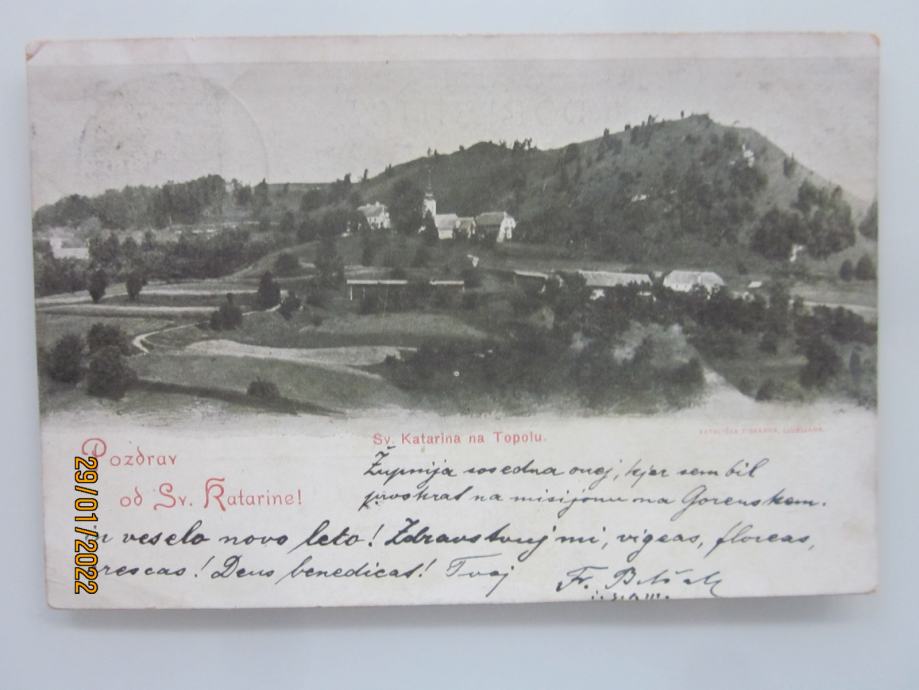 Sv. Katarina na Topolu.
KATOLIŠKA TISKARNA, LJUBLJANA.
Pozdrav
od Sv. Katarine!
Župnija sosedna onej, kjer sem bil
prvokrat na misijonu na Gorenskem.
veselo novo leto! Zdravstvuj mi, vigeas, floreas,
crescas! Deus benedicat! Tvoj Fr.
29/01/2022